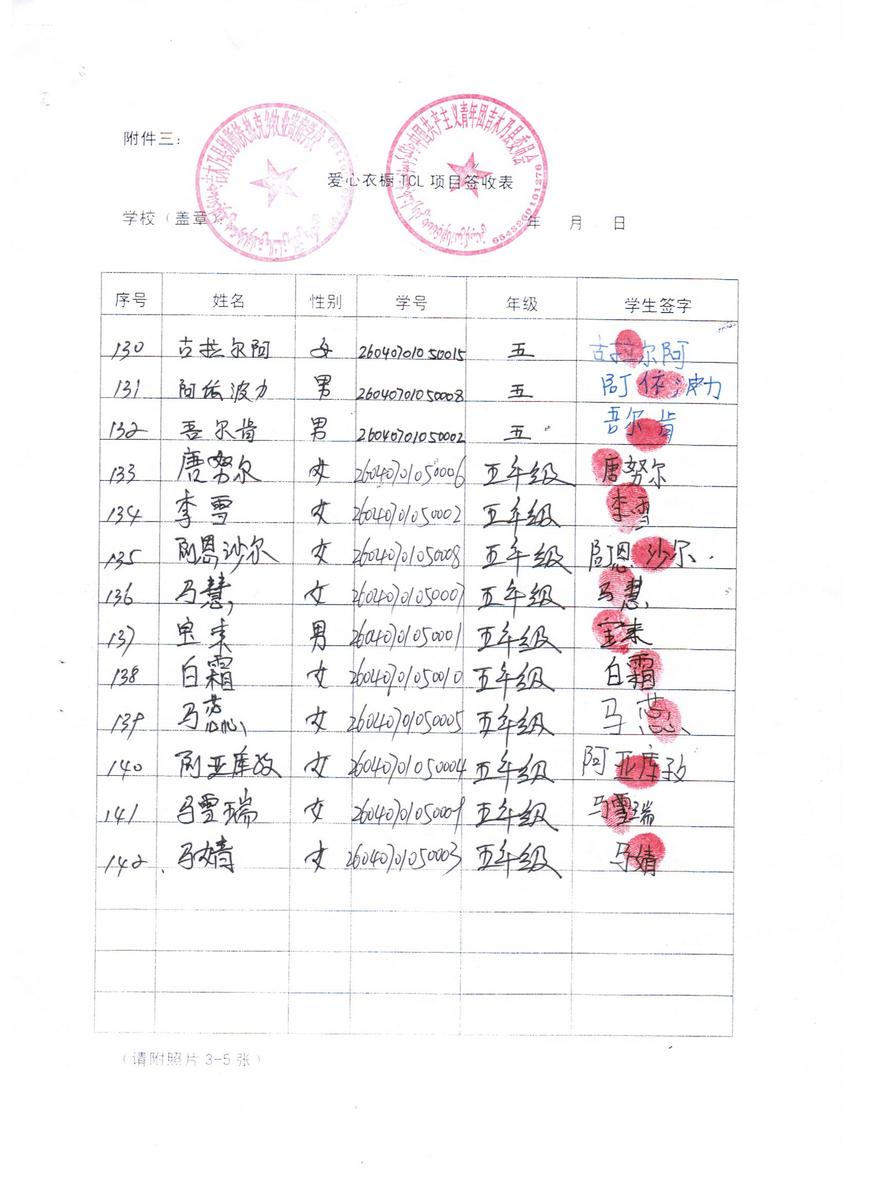 附件三：
爱心衣橱·TCL 项目签收表
学校（盖章
年 月 日
中国共产主义青年团吉木乃县委员会
6543260101276
序号 姓名 性别 学号 年级 学生签字
130 古拉尔阿 女 26040701050015 五 古拉尔阿
131 阿依波力 男 26040701050008 五 阿依波力
132 吾尔肯 男 26040701050002 五 吾尔肯
133 唐努尔 女 26040701050006 五年级 唐努尔
134 李雪 女 26040701050002 五年级 李雪
135 阿恩沙尔 女 26040701050008 五年级 阿恩沙尔
136 马慧 女 26040701050007 五年级 马慧
137 男 26040701050001 五年级
138 白霜 女 26040701050010 五年级 白霜
139 马蕊 女 26040701050005 五年级 马蕊
140 阿亚库孜 女 26040701050004 五年级 阿亚库孜
141 马雪瑞 女 26040701050009 五年级 马雪瑞
142 马婧 女 26040701050003 五年级 马婧
（请附照片 3-5 张）